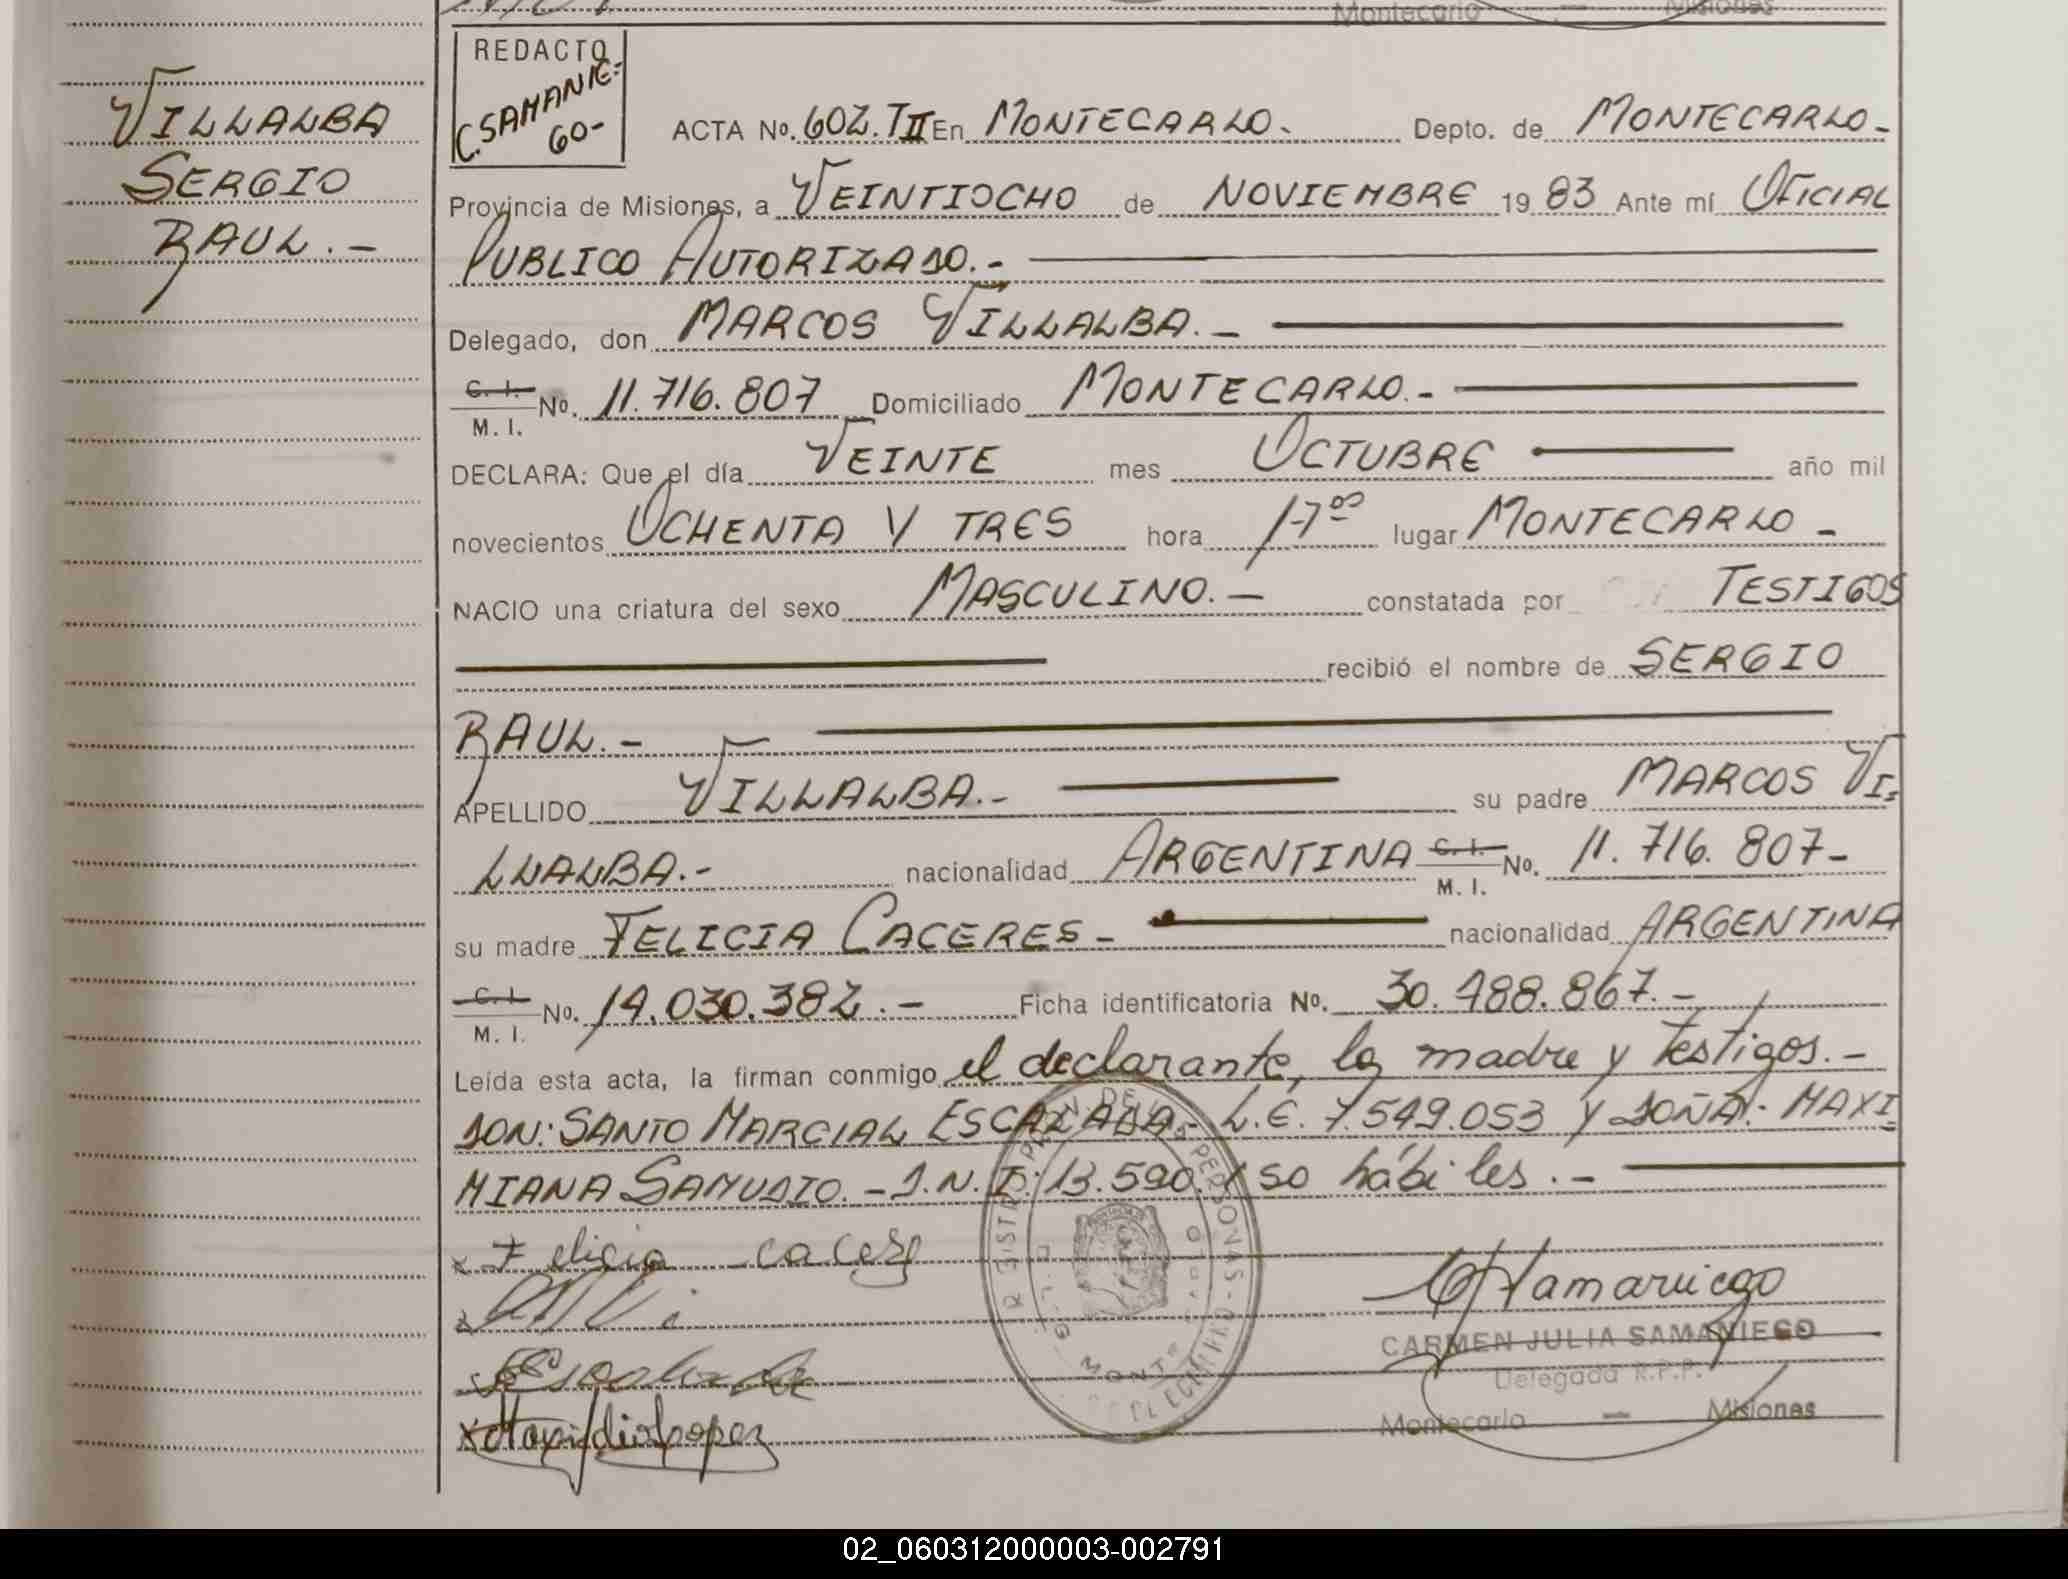 Montecarlo — Misiones
VILLALBA
SERGIO
RAUL.-
REDACTO
C. SAMANIE=
GO-
ACTA No. 602. T II En MONTECARLO.- Depto. de MONTECARLO-
Provincia de Misiones, a VEINTIOCHO de NOVIEMBRE 19 83 Ante mí OFICIAL
PUBLICO AUTORIZADO.-
Delegado, don MARCOS VILLALBA.-
C. I.
M. I. No. 11.716.807 Domiciliado MONTECARLO.-
DECLARA: Que el día VEINTE mes OCTUBRE año mil
novecientos OCHENTA Y TRES hora 17 00 lugar MONTECARLO-
NACIO una criatura del sexo MASCULINO.- constatada por TESTIGOS
recibió el nombre de SERGIO
RAUL.-
APELLIDO VILLALBA.- su padre MARCOS VI=
LLALBA.- nacionalidad ARGENTINA C. I.
M. I. No. 11.716.807-
su madre FELICIA CACERES- nacionalidad ARGENTINA
C. I.
M. I. No. 14.030.382.- Ficha identificatoria No. 30.488.867.-
Leída esta acta, la firman conmigo el declarante, la madre y testigos.-
DON: SANTO MARCIAL ESCALADA.- L.E. 7.549.053 y DOÑA:- MAXI
MIANA SAMUDIO.- D.N.I: 13.590.150 hábiles.-
x Felicia caceres
CARMEN JULIA SAMANIEGO
Delegada R.P.P.
Montecarlo — Misiones
02_060312000003-002791